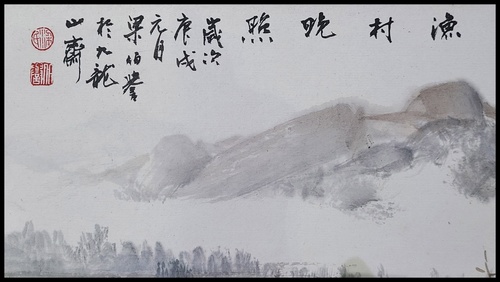 漁村晚照
歲次
庚戌
元月
梁伯譽
於九龍
山齋